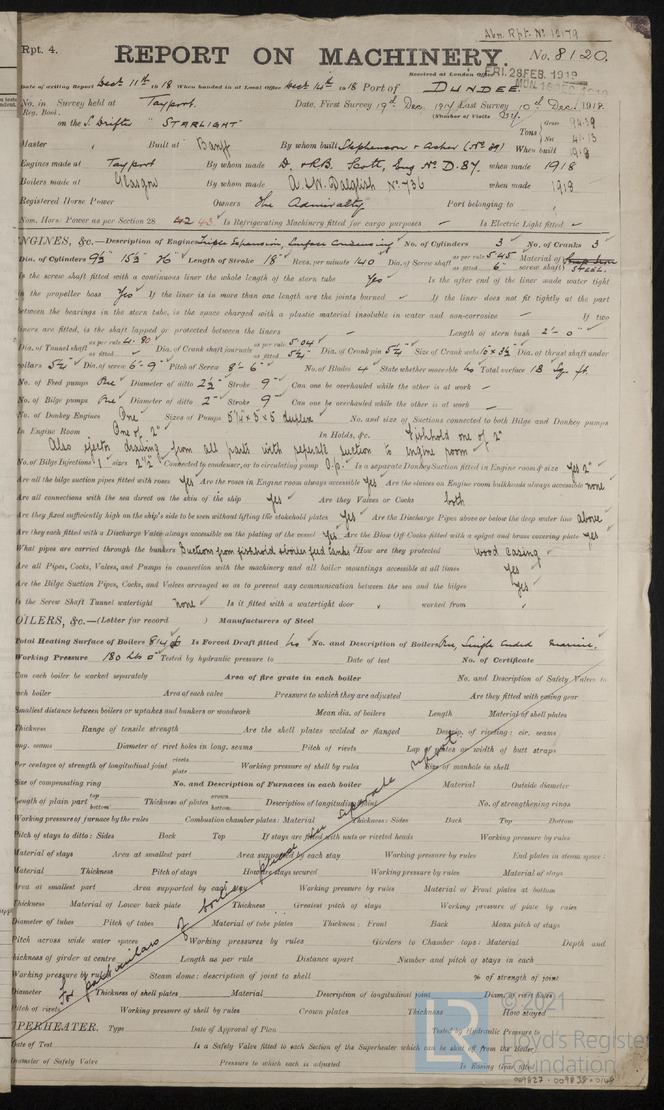 Abn. Rpt. No. 12179
Rpt. 4.
REPORT ON MACHINERY.
No. 8120.
Received at London Office FRI. 28 FEB. 1919
Date of writing Report Dec 11th 1918 When handed in at Local Office Dec 14th 1918 Port of DUNDEE
No. in Survey held at Tayport Date, First Survey 19th Dec. 1917 Last Survey 10th Dec. 1918
Reg. Book. (Number of Visits
on the S. Drifter "STARLIGHT" Tons Gross 94.39 Net 41.13
Master Built at Banff By whom built Stephenson & Asher When built 1918
Engines made at Tayport By whom made D. & R.B. Scott, Eng No D.87. when made 1918
Boilers made at Glasgow By whom made A. & W. Dalglish No 736 when made 1918
Registered Horse Power Owners The Admiralty Port belonging to
Nom. Horse Power as per Section 28 42 43 Is Refrigerating Machinery fitted for cargo purposes – Is Electric Light fitted –
NGINES, &c.—Description of Engines Triple Expansion, Surface Condensing No. of Cylinders 3 No. of Cranks 3
Dia. of Cylinders 9½" 15½" 26" Length of Stroke 18" Revs. per minute 140 Dia. of Screw shaft as per rule 5.45 as fitted 6" Material of screw shaft Steel
Is the screw shaft fitted with a continuous liner the whole length of the stern tube Yes Is the after end of the liner made water tight
in the propeller boss Yes If the liner is in more than one length are the joints burned – If the liner does not fit tightly at the part
between the bearings in the stern tube, is the space charged with a plastic material insoluble in water and non-corrosive – If two
liners are fitted, is the shaft lapped or protected between the liners – Length of stern bush 2'-0"
Dia. of Tunnel shaft as per rule 4.80 as fitted Dia. of Crank shaft journals as per rule 5.04 as fitted 5¼" Dia. of Crank pin 5¼" Size of Crank webs 10 x 3½ Dia. of thrust shaft under
collars 5¼" Dia. of screw 6'-9" Pitch of Screw 8'-6" No. of Blades 4 State whether moveable No Total surface 18 Sq. ft.
No. of Feed pumps One Diameter of ditto 2½" Stroke 9" Can one be overhauled while the other is at work –
No. of Bilge pumps One Diameter of ditto 2" Stroke 9" Can one be overhauled while the other is at work –
No. of Donkey Engines One Sizes of Pumps 5¼ x 5 x 5 duplex No. and size of Suctions connected to both Bilge and Donkey pumps
In Engine Room One of 2" In Holds, &c. Fishhold one of 2"
Also ejector drawing from all parts with seperate suction to engine room
No. of Bilge Injections 1 sizes 2½" Connected to condenser, or to circulating pump C.p. Is a separate Donkey Suction fitted in Engine room & size Yes 2"
Are all the bilge suction pipes fitted with roses Yes Are the roses in Engine room always accessible Yes Are the sluices on Engine room bulkheads always accessible none
Are all connections with the sea direct on the skin of the ship Yes Are they Valves or Cocks both
Are they fixed sufficiently high on the ship's side to be seen without lifting the stokehold plates Yes Are the Discharge Pipes above or below the deep water line above
Are they each fitted with a Discharge Valve always accessible on the plating of the vessel Yes Are the Blow Off Cocks fitted with a spigot and brass covering plate Yes
What pipes are carried through the bunkers Suctions from fishhold & boiler feed tanks How are they protected Wood casing
Are all Pipes, Cocks, Valves, and Pumps in connection with the machinery and all boiler mountings accessible at all times Yes
Are the Bilge Suction Pipes, Cocks, and Valves arranged so as to prevent any communication between the sea and the bilges Yes
Is the Screw Shaft Tunnel watertight none Is it fitted with a watertight door worked from
OILERS, &c.—(Letter for record ) Manufacturers of Steel
Total Heating Surface of Boilers 814 Is Forced Draft fitted No No. and Description of Boilers One, Single Ended Marine.
Working Pressure 180 Lbs Tested by hydraulic pressure to Date of test No. of Certificate
Can each boiler be worked separately Area of fire grate in each boiler No. and Description of Safety Valves to
each boiler Area of each valve Pressure to which they are adjusted Are they fitted with easing gear
Smallest distance between boilers or uptakes and bunkers or woodwork Mean dia. of boilers Length Material of shell plates
Thickness Range of tensile strength Are the shell plates welded or flanged Descrip. of riveting: cir. seams
long. seams Diameter of rivet holes in long. seams Pitch of rivets Lap of plates or width of butt straps
Per centages of strength of longitudinal joint rivets plate Working pressure of shell by rules Size of manhole in shell
Size of compensating ring No. and Description of Furnaces in each boiler Material Outside diameter
Length of plain part top bottom Thickness of plates crown bottom Description of longitudinal joint No. of strengthening rings
Working pressure of furnace by the rules Combustion chamber plates: Material Thickness: Sides Back Top Bottom
Pitch of stays to ditto: Sides Back Top If stays are fitted with nuts or riveted heads Working pressure by rules
Material of stays Area at smallest part Area supported by each stay Working pressure by rules End plates in steam space:
Material Thickness Pitch of stays How are stays secured Working pressure by rules Material of stays
Area at smallest part Area supported by each stay Working pressure by rules Material of Front plates at bottom
Thickness Material of Lower back plate Thickness Greatest pitch of stays Working pressure of plate by rules
Diameter of tubes Pitch of tubes Material of tube plates Thickness: Front Back Mean pitch of stays
Pitch across wide water spaces Working pressures by rules Girders to Chamber tops: Material Depth and
thickness of girder at centre Length as per rule Distance apart Number and pitch of stays in each
Working pressure by rules Steam dome: description of joint to shell % of strength of joint
Diameter Thickness of shell plates Material Description of longitudinal joint Diam. of rivet holes
Pitch of rivets Working pressure of shell by rules Crown plates Thickness How stayed
For particulars of boiler please see separate report.
UPERHEATER. Type Date of Approval of Plan Tested by Hydraulic Pressure to
Date of Test Is a Safety Valve fitted to each Section of the Superheater which can be shut off from the Boiler
Diameter of Safety Valve Pressure to which each is adjusted Is Easing Gear fitted
© 2021
LR
Lloyd's Register
Foundation
009827-009838-0149